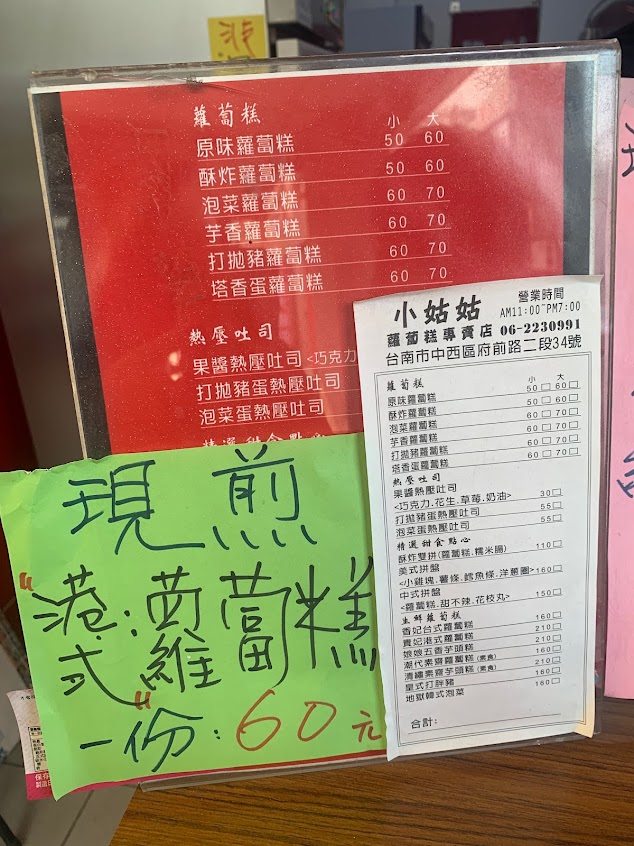 蘿蔔糕
小 大
原味蘿蔔糕 50 60
酥炸蘿蔔糕 50 60
泡菜蘿蔔糕 60 70
芋香蘿蔔糕 60 70
打拋豬蘿蔔糕 60 70
塔香蛋蘿蔔糕 60 70
熱壓吐司
果醬熱壓吐司<巧克力
打拋豬蛋熱壓吐司
泡菜蛋熱壓吐司
精選甜食點心
現煎
"港式":蘿蔔糕
一份:60元
小姑姑
營業時間
AM11:00~PM7:00
蘿蔔糕專賣店 06-2230991
台南市中西區府前路二段34號
蘿蔔糕
小 大
原味蘿蔔糕 50□60□
酥炸蘿蔔糕 50□60□
泡菜蘿蔔糕 60□70□
芋香蘿蔔糕 60□70□
打拋豬蘿蔔糕 60□70□
塔香蛋蘿蔔糕 60□70□
熱壓吐司
果醬熱壓吐司
<巧克力.花生.草莓.奶油> 30□
打拋豬蛋熱壓吐司 55□
泡菜蛋熱壓吐司 55□
精選甜食點心
酥炸雙拼(蘿蔔糕.糯米腸) 110□
美式拼盤
<小雞塊.薯條.鱈魚條.洋蔥圈> 160□
中式拼盤
<蘿蔔糕.甜不辣.花枝丸> 150□
生鮮蘿蔔糕
香妃台式蘿蔔糕 160□
貴妃港式蘿蔔糕 210□
娘娘五香芋頭糕 160□
潮代素齋蘿蔔糕(素食) 160□
清繡素齋芋頭糕(素食) 210□
皇式打胖豬 160□
地獄韓式泡菜
合計: